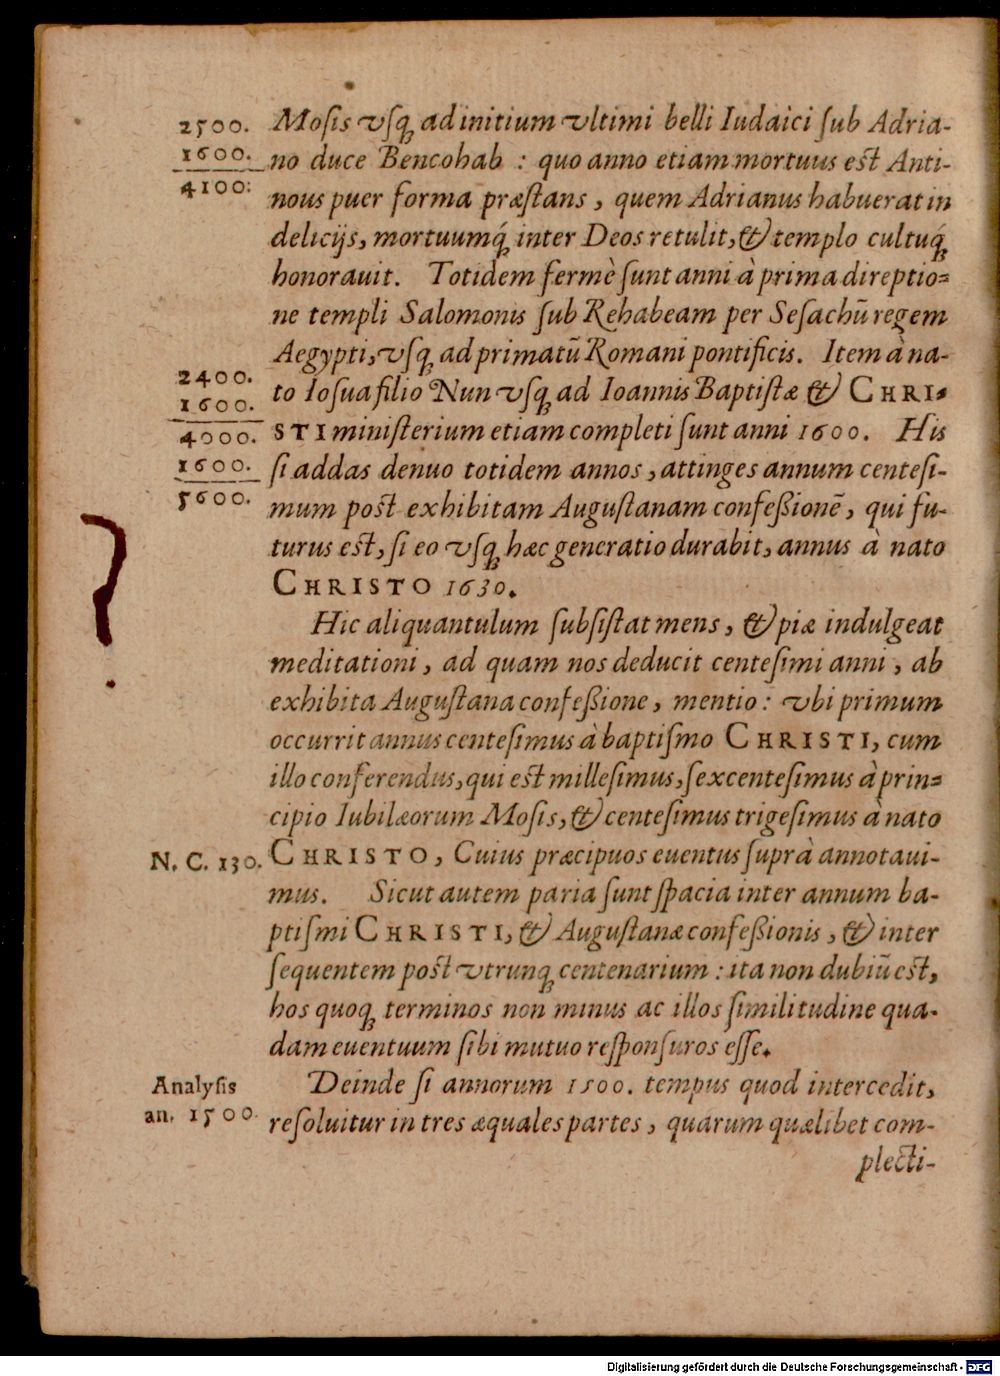 2500.
1600.
4100:
Mosis vsq́ꝫ ad initium vltimi belli Iudaici sub Adria-
no duce Bencohab : quo anno etiam mortuus est Anti-
nous puer forma præstans, quem Adrianus habuerat in
delicijs, mortuumq́ꝫ inter Deos retulit, & templo cultuq́ꝫ
honorauit. Totidem fermè sunt anni à prima direptio=
ne templi Salomonis sub Rehabeam per Sesachū regem
Aegypti, vsqꝫ ad primatū Romani pontificis. Item à na-
2400.
1600.
4000.
1600.
5600.
to Iosua filio Nun vsqꝫ ad Ioannis Baptistæ & CHRI-
STI ministerium etiam completi sunt anni 1600. His
si addas denuo totidem annos, attinges annum centesi-
mum post exhibitam Augustanam confeßionē, qui fu-
turus est, si eo vsqꝫ hæc generatio durabit, annus à nato
CHRISTO 1630.
?
Hic aliquantulum subsistat mens, & piæ indulgeat
meditationi, ad quam nos deducit centesimi anni, ab
exhibita Augustana confeßione, mentio : vbi primum
occurrit annus centesimus à baptismo CHRISTI, cum
illo conferendus, qui est millesimus, sexcentesimus à prin=
cipio Iubilæorum Mosis, & centesimus trigesimus à nato
N. C. 130.
CHRISTO, Cuius præcipuos euentus suprà annotaui-
mus. Sicut autem paria sunt spacia inter annum ba-
ptismi CHRISTI, & Augustanæ confeßionis, & inter
sequentem post vtrunqꝫ centenarium : ita non dubiū est,
hos quoqꝫ terminos non minus ac illos similitudine qua-
dam euentuum sibi mutuo responsuros esse.
Analysis
an. 1500.
Deinde si annorum 1500. tempus quod intercedit,
resoluitur in tres æquales partes, quarum quælibet com-
plecti-
Digitalisierung gefördert durch die Deutsche Forschungsgemeinschaft - DFG